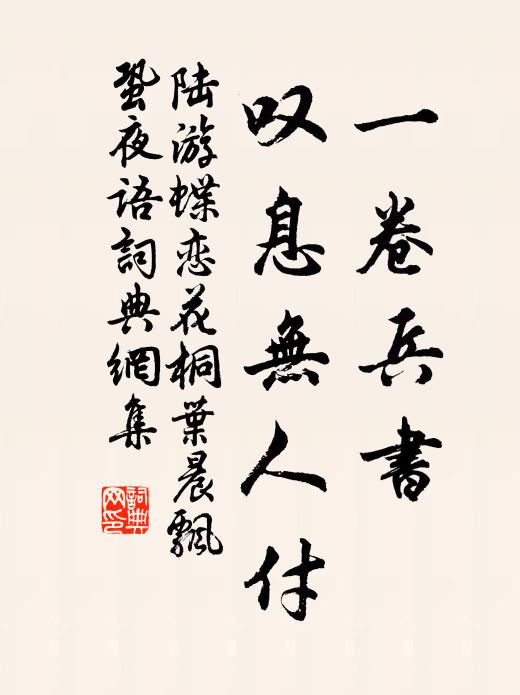 一卷兵書
叹息無人付
陆游蝶恋花桐葉晨飄
蛩夜语詞典網集
詞典网印